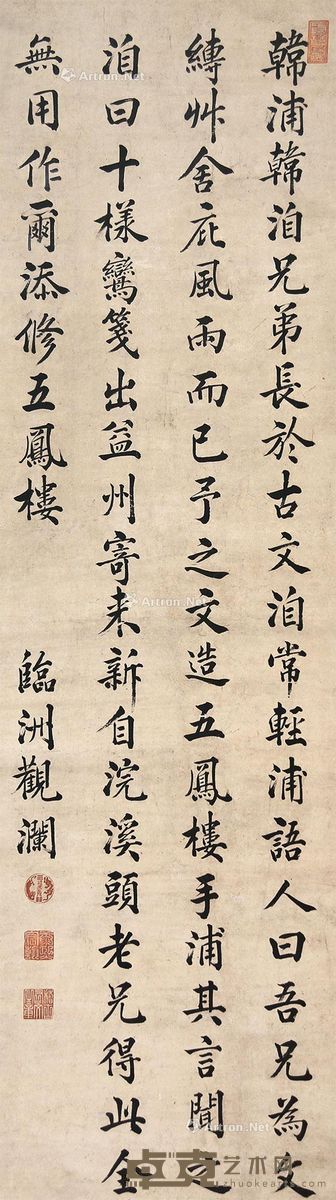 韓浦韓洎兄弟長於古文洎常輕浦語人曰吾兄為文
縳艸舍庇風雨而已予之文造五鳳樓手浦其言聞之
洎曰十樣鸞箋出益州寄来新自浣溪頭老兄得此全
無用作爾添修五鳳樓
臨洲觀瀾
Artron.Net
卓克艺术网